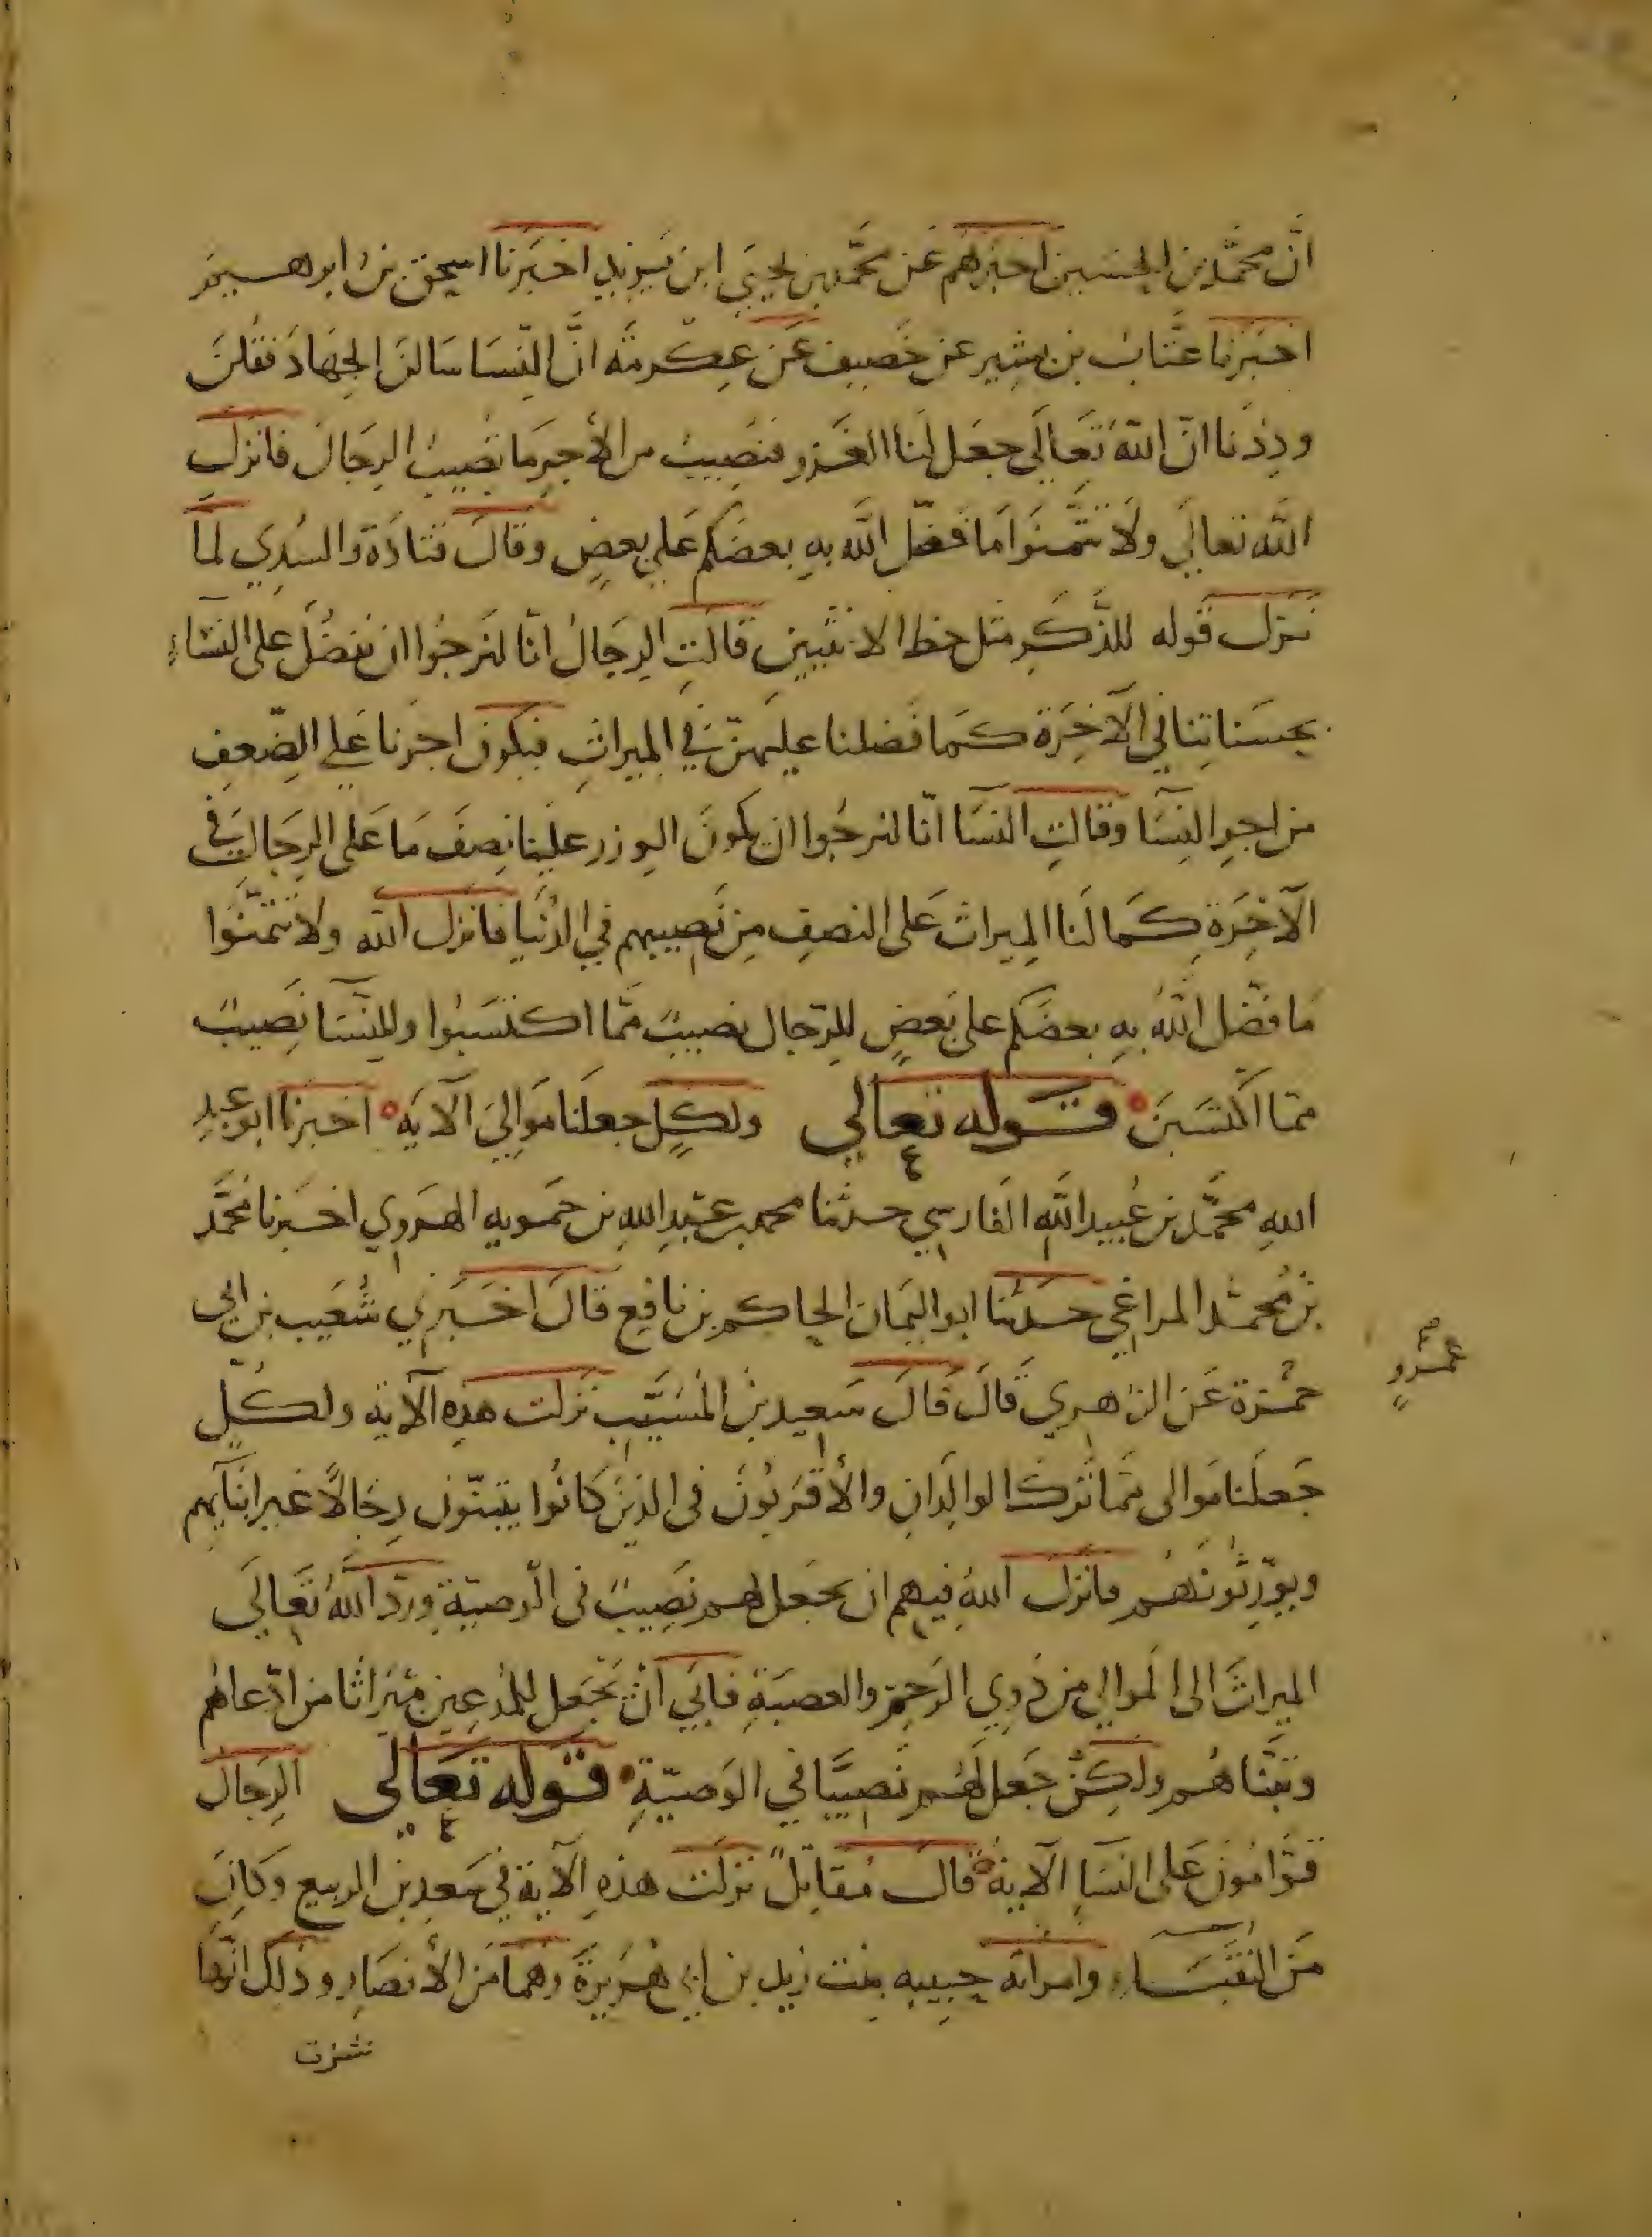 انّ محمّد بن الحسين اخبرهم عن محمّد بن يحيى ابن يزيد اخبرنا اسحق بن ابرهيم
اخبرنا عتّاب بن بشير عن خصيف عن عكرمة انّ النّسا سالن الجهاد فقلن
وددنا انّ الله تعالى جعل لنا الغزو فنصيب من الأجر ما يصيب الرجال فانزل
الله تعالي ولا تتمنّوا ما فضّل الله به بعضكم على بعض وقال قتادة والسدي لما
نزل قوله للذّكر مثل حظ الانثيين قالت الرجال انّا لنرجوا ان نفضل على النساء
بحسناتنا في الآخرة كما فضلنا عليهنّ في الميراث فيكون اجرنا على الضّعف
من اجر النسا وقالت النسا انّا لنرجوا ان يكون الوزر علينا نصف ما على الرجال في
الآخرة كما لنا الميراث على النصف من نصيبهم في الدّنيا فانزل الله ولا تتمنّوا
ما فضّل الله به بعضكم على بعض للرّجال نصيب ممّا اكتسبوا وللنّسا نصيب
ممّا اكتسبن قوله تعالي ولكلٍ جعلنا موالي الآية اخبرنا ابو عبد
الله محمّد بن عبيد الله الفارسي حدثنا محمد بن عبد الله بن حمويه الهروي اخبرنا محمّد
بن محمد المراغي حدثنا ابو اليمان الحاكم بن نافع قال اخبرني شعيب بن ابي
حمزة عن الزاهري قال قال سعيد بن المسيّب نزلت هذه الآية ولكلٍ
عمرو
جعلنا موالى ممّا ترك الوالدان والأقربون في الذين كانوا يتبنّون رجالاً غير ابنآيهم
ويورّثونهم فانزل الله فيهم ان يجعل لهم نصيب في الوصيّة وردّ الله تعالى
الميراث الى الموالي من ذوي الرحم والعصبة فابي ان يجعل للمدعين ميراثا من ادّعاهم
وتبنّاهم ولكن جعل لهم نصيبًا في الوصيّة قوله تعالي الرجال
قوّامون على النسا الآية قال مقاتل نزلت هذه الآية في سعد بن الربيع وكان
من النقباء وامراته حبيبه بنت زيد بن ابي هريرة وهما من الأنصار وذلك انّها
نشزت